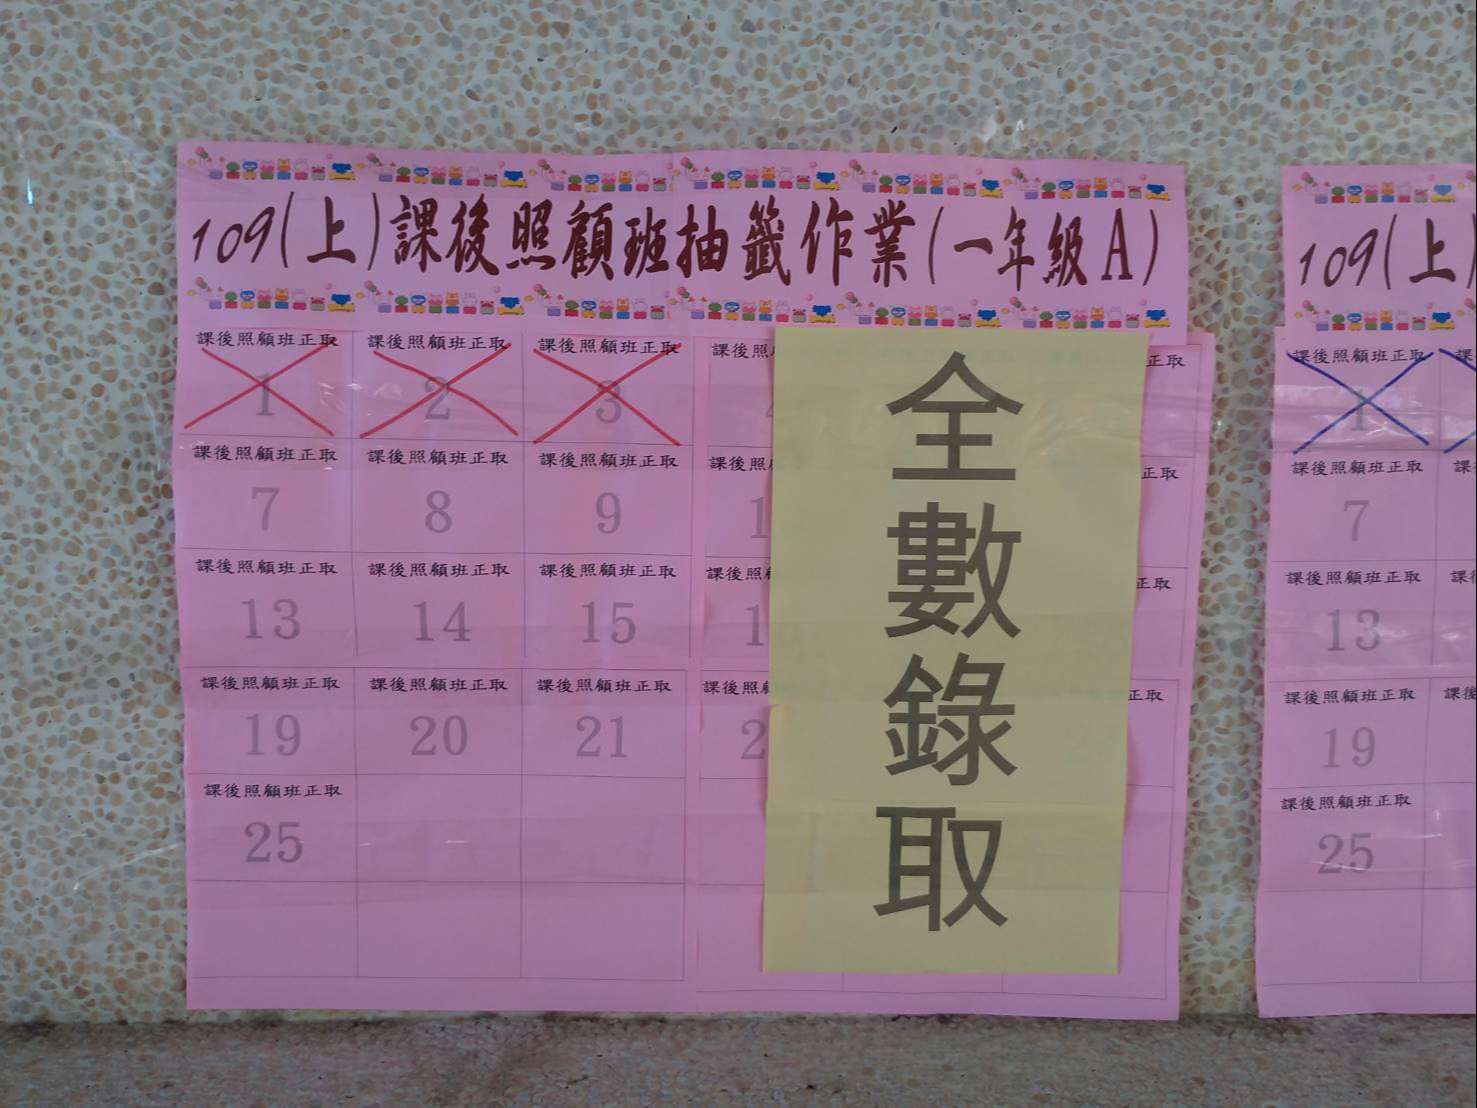 109(上)課後照顧班抽籤作業(一年級A)
109(上)
課後照顧班正取 課後照顧班正取 課後照顧班正取 課後照 取
1 2 3
課後照顧班正取 課後照顧班正取 課後照顧班正取 課後照 正取
7 8 9 1
課後照顧班正取 課後照顧班正取 課後照顧班正取 課後照 正取
13 14 15 1
課後照顧班正取 課後照顧班正取 課後照顧班正取 課後照 正取
19 20 21 2
課後照顧班正取
25
全
數
錄
取
課後照顧班正取
1
課後照顧班正取 課
7
課後照顧班正取 課
13
課後照顧班正取 課
19
課後照顧班正取
25